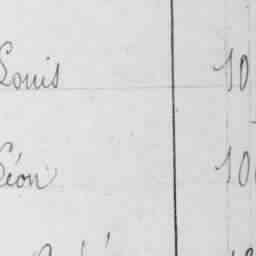 Louis 10
Léon 10